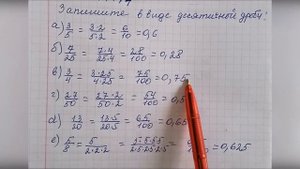 Запишите в виде десятичной дроби:
а) 3/5 = 3·2/5·2 = 6/10 = 0,6
б) 7/25 = 7·4/25·4 = 28/100 = 0,28
в) 3/4 = 3·25/4·25 = 75/100 = 0,75
г) 27/50 = 27·2/50·2 = 54/100 = 0,5
д) 13/20 = 13·5/20·5 = 65/100 = 0,65
е) 5/8 = 5/2·2·2 = 5·5·5·5/2·5·2·5·2·5 = = 0,625